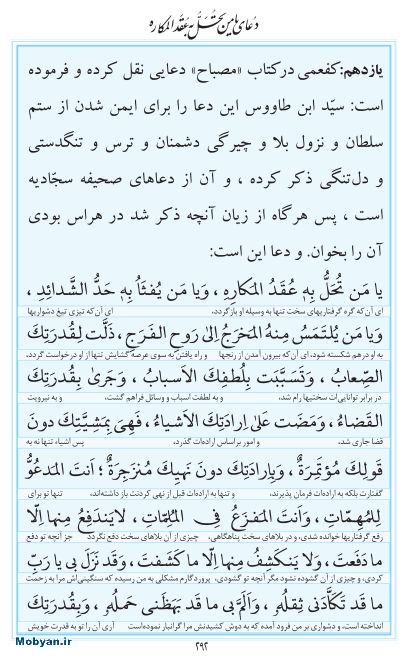 دُعای یا مَن تُحَلُّ بِه عُقَدُ المَکارِه
یازدهم: کفعمی در کتاب «مصباح» دعایی نقل کرده و فرموده
است: سیّد ابن طاووس این دعا را برای ایمن شدن از ستم
سلطان و نزول بلا و چیرگی دشمنان و ترس و تنگدستی
و دل‌تنگی ذکر کرده ، و آن از دعاهای صحیفه سجّادیه
است ، پس هرگاه از زیان آنچه ذکر شد در هراس بودی
آن را بخوان. و دعا این است:
یا مَن تُحَلُّ بِهِ عُقَدُ المَکارِهِ ، وَیا مَن یُفثَأُ بِهِ حَدُّ الشَّدائِدِ ،
ای آن‌که گره گرفتاریهای سخت تنها به وسیله او باز گردد، ای آن‌که تیزی تیغ دشواریها
وَیا مَن یُلتَمَسُ مِنهُ المَخرَجُ اِلیٰ رَوحِ الفَرَجِ ، ذَلَّت لِقُدرَتِکَ
به او درهم شکسته شود، ای آن‌که بیرون آمدن از رنجها و راه یافتن به سوی عرصه گشایش تنها از او درخواست گردد،
الصِّعابُ ، وَتَسَبَّبَت بِلُطفِکَ الاَسبابُ ، وَجَریٰ بِقُدرَتِکَ
در برابر توانایی‌ات سختیها رام شد، و به لطفت اسباب و وسائل فراهم گشت، و به نیرویت
القَضاءُ ، وَمَضَت عَلیٰ اِرادَتِکَ الاَشیاءُ ، فَهِیَ بِمَشِیَّتِکَ دونَ
قضا جاری شد، و امور براساس اراده‌ات گذرد، پس اشیاء تنها نه به
قَولِکَ مُؤتَمِرَةٌ ، وَبِاِرادَتِکَ دونَ نَهیِکَ مُنزَجِرَةٌ ؛ اَنتَ المَدعُوُّ
گفتارت بلکه به اراده‌ات فرمان پذیرند، و تنها به اراده‌ات قبل از نهی کردنت باز داشته‌اند، تنها تو برای
لِلمُهِمّاتِ ، وَاَنتَ المَفزَعُ فِی المُلِمّاتِ ، لایَندَفِعُ مِنها اِلّا
رفع گرفتاریها خوانده شدی، و در بلاهای سخت پناهگاهی، چیزی از آن بلاهای سخت دفع نگردد جز آنچه تو دفع
ما دَفَعتَ ، وَلا یَنکَشِفُ مِنها اِلّا ما کَشَفتَ ، وَقَد نَزَلَ بی یا رَبِّ
کردی، و چیزی از آن گشوده نشود مگر آنچه تو گشودی، پروردگارم مشکلی به من رسیده که سنگینی‌اش مرا به زحمت
ما قَد تَکَأَّدَنی ثِقلُهُ ، وَاَلَمَّ بی ما قَد بَهَظَنی حَملُهُ ، وَبِقُدرَتِکَ
انداخته است، و دشواری بر من فرود آمده که به دوش کشیدنش مرا گرانبار نموده‌است آری آن را تو به قدرت خویش
۲۹۲
Mobyan.ir